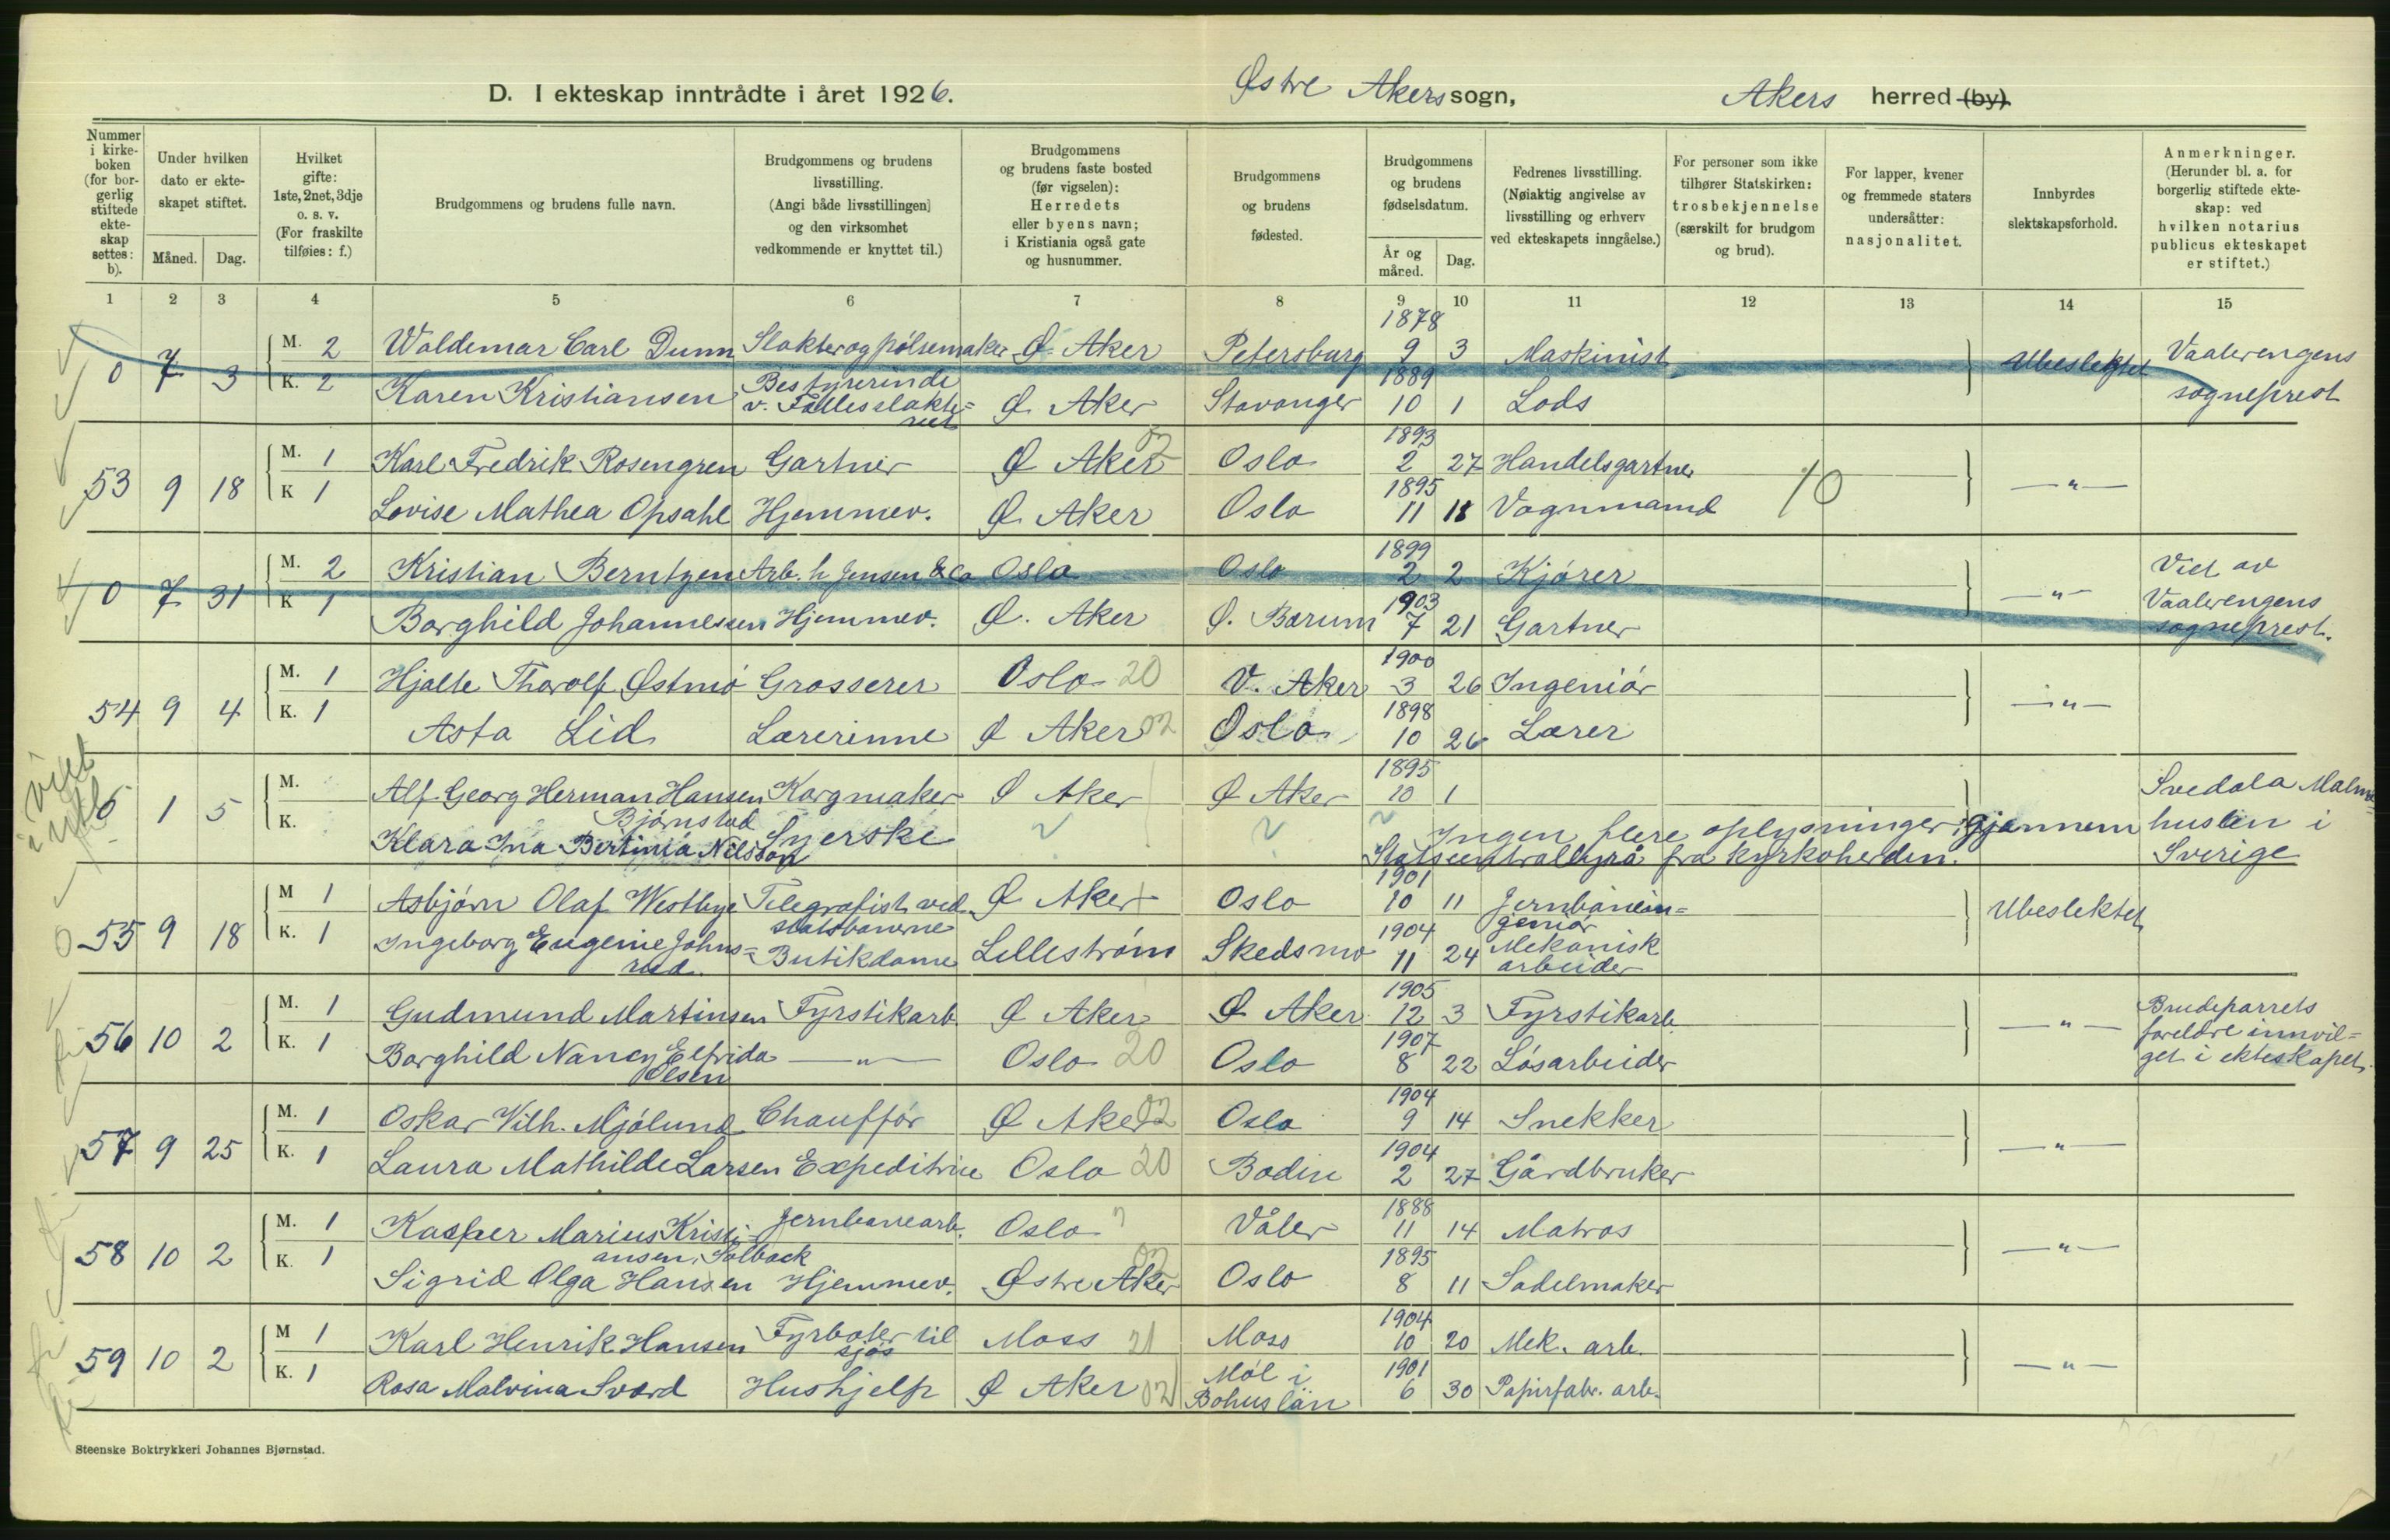 D. I ekteskap inntrådte i året 1926. Østre Akers sogn, Akers herred (by).
Nummer i kirkeboken (for borgerlig stiftede ekteskap settes: b).
Under hvilken dato er ekteskapet stiftet.
Måned. Dag.
Hvilket gifte: 1ste, 2net, 3dje o. s. v. (For fraskilte tilføies: f.)
Brudgommens og brudens fulle navn.
Brudgommens og brudens livsstilling. (Angi både livsstillingen og den virksomhet vedkommende er knyttet til.)
Brudgommens og brudens faste bosted (før vigselen): Herredets eller byens navn; i Kristiania også gate og husnummer.
Brudgommens og brudens fødested.
Brudgommens og brudens fødselsdatum.
År og måned. Dag.
Fedrenes livsstilling. (Nøiaktig angivelse av livsstilling og erhverv ved ekteskapets inngåelse.)
For personer som ikke tilhører Statskirken: trosbekjennelse (særskilt for brudgom og brud).
For lapper, kvener og fremmede staters undersåtter: nasjonalitet.
Innbyrdes slektskapsforhold.
Anmerkninger. (Herunder bl. a. for borgerlig stiftede ekteskap: ved hvilken notarius publicus ekteskapet er stiftet.)
1 2 3 4 5 6 7 8 9 10 11 12 13 14 15
0 7 3 M. 2 Waldemar Carl Dunn Slakter og pølsemaker Ø Aker Petersburg 1878 9 3 Maskinist Ubeslektet Vaalerengens
K. 2 Karen Kristiansen Bestyrerinde v. Fællesslakteriet Ø. Aker Stavanger 1889 10 1 Lods sogneprest
53 9 18 M. 1 Karl Fredrik Rosengren Gartner Ø Aker 02 Oslo 1893 2 27 Handelsgartner 10 — " —
K 1 Lovise Mathea Opsahl Hjemmev. Ø. Aker Oslo 1895 11 18 Vognmand
0 7 31 M. 2 Kristian Berntzen Arb. h. Jensen & Co Oslo Oslo 1899 2 2 Kjører — " — Viet av
K 1 Borghild Johannessen Hjemmev. Ø. Aker Ø. Bærum 1903 7 21 Gartner Vaalerengens sogneprest.
54 9 4 M. 1 Hjalte Thorolf Østmo Grosserer Oslo 20 V. Aker 1900 3 26 Ingeniør — " —
K. 1 Asta Lid Lærerinne Ø Aker 02 Oslo 1898 10 26 Lærer
viet i utl.
6 1 5 M. Alf Georg Herman Hansen Bjørnstad Korgmaker Ø Aker Ø Aker 1895 10 1 Svedala Malmø=
K. Klara Ina Bertinia Nilsson Syerske Ingen flere oplysninger gjennem huslen i
Statscentralbyrå fra kyrkoherden. Sverige
55 9 18 M 1 Asbjørn Olaf Westbye Telegrafist ved statsbanerne Ø Aker Oslo 1901 10 11 Jernbanein=geniør Ubeslektet
K. 1 Ingeborg Eugenie Johns=rud. Butikdame Lillestrøm Skedsmo 1904 11 24 Mekanisk arbeider
56 10 2 M. 1 Gudmund Martinsen Fyrstikarb. Ø Aker Ø Aker 1905 12 3 Fyrstikarb. — " — Brudeparrets
K. 1 Borghild Nancy Elfrida Olsen — " — Oslo 20 Oslo 1907 8 22 Løsarbeider foreldre innvil=get i ekteskapet.
57 9 25 M. 1 Oskar Vilh. Mjølund Chauffør Ø Aker 02 Oslo 1904 9 14 Snekker — " —
K. 1 Laura Mathilde Larsen Expeditrice Oslo 20 Bodin 1904 2 27 Gårdbruker
58 10 2 M. 1 Kasper Marius Kristi=ansen, Solback Jernbanearb. Oslo Våler 1888 11 14 Matros — " —
K. 1 Sigrid Olga Hansen Hjemmev. Østre Aker 02 Oslo 1895 8 11 Sadelmaker
59 10 2 M 1 Karl Henrik Hansen Fyrbøter til sjøs Moss 21 Moss 1904 10 20 Mek. arb. — " —
K. 1 Rosa Malvina Sværd Hushjelp Ø Aker 02 Møl i Bohuslän 1901 6 30 Papirfabr. arb.
Steenske Boktrykkeri Johannes Bjørnstad.